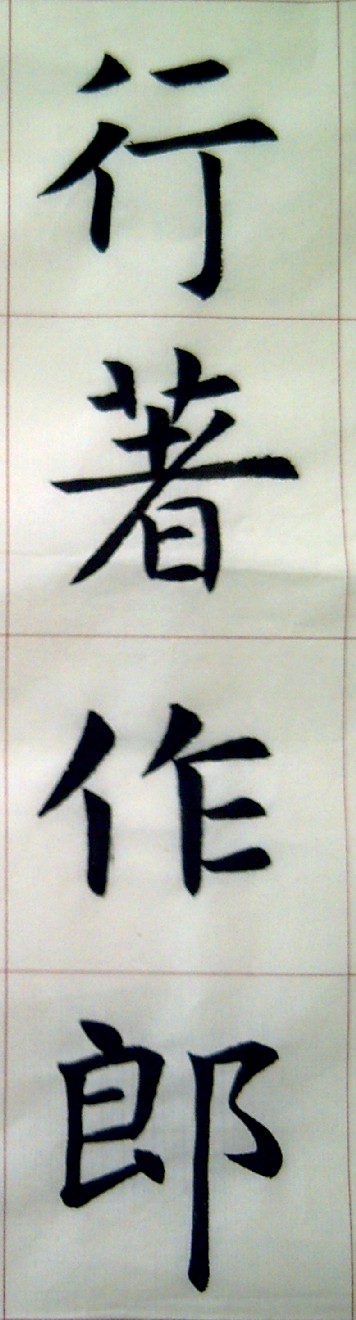 行著作郎